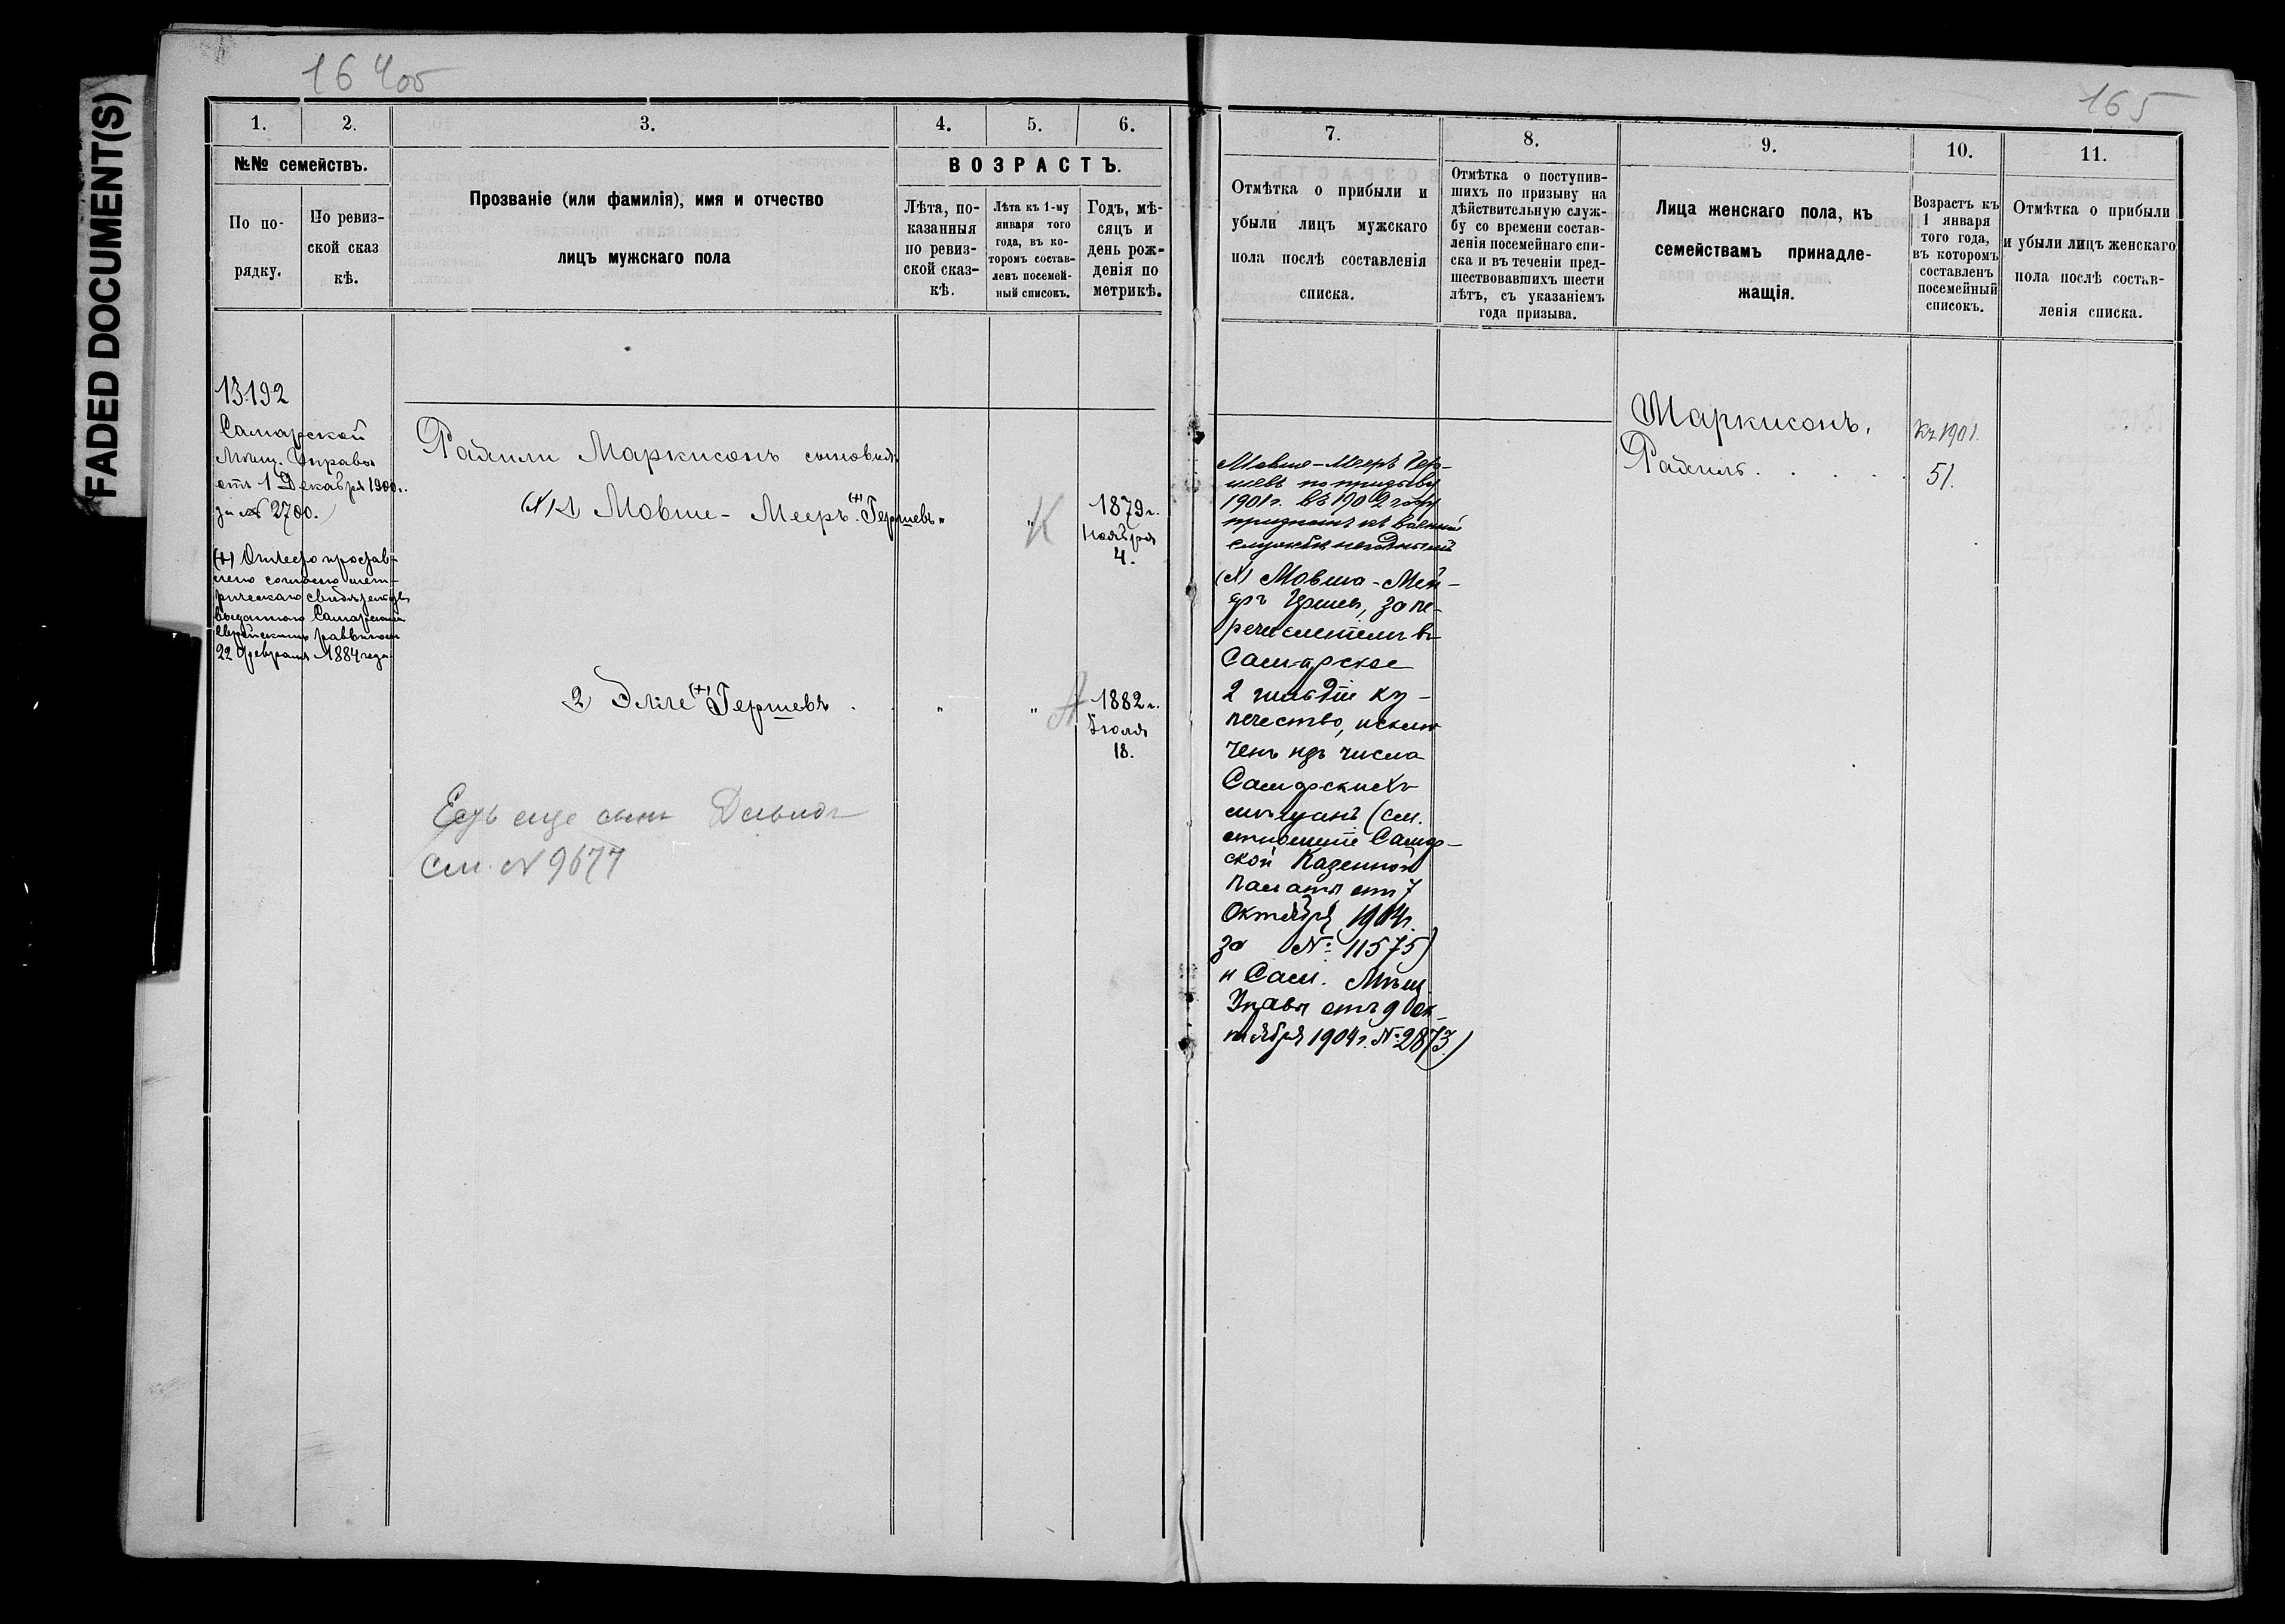 FADED DOCUMENT(S)
164об
165
1.
2.
3.
4.
5.
6.
№№ семействъ.
По по-
рядку.
По ревиз-
ской сказ
кѣ.
Прозваніе (или фамилія), имя и отчество
лицъ мужскаго пола
ВОЗРАСТЪ.
Лѣта, по-
казанныя
по ревиз-
ской сказ-
кѣ.
Лѣта къ 1-му
января того
года, въ ко-
торомъ состав-
ленъ посемей-
ный списокъ.
Годъ, мѣ-
сяцъ и
день рож-
денія по
метрикѣ.
7.
8.
9.
10.
11.
Отмѣтка о прибыли и
убыли лицъ мужскаго
пола послѣ составленія
списка.
Отмѣтка о поступив-
шихъ по призыву на
дѣйствительную служ-
бу со времени состав-
ленія посемейнаго спи-
ска и въ теченіи пред-
шествовавшихъ шести
лѣтъ, съ указаніемъ
года призыва.
Лица женскаго пола, къ
семействамъ принадле-
жащія.
Возрастъ къ
1 января
того года,
въ которомъ
составленъ
посемейный
списокъ.
Отмѣтка о прибыли
и убыли лицъ женскаго
пола послѣ состав-
ленія списка.
13192
Самарской
Мѣщ. Управы
отъ 1 Декабря 1900г.
за № 2700.
(+) Отчество простав-
лено согласно мет-
рическаго свидѣтельства
выданного Самарскимъ
Еврейскимъ раввиномъ
22 февраля 1884 года
Рахили Маркисонъ сыновья:
(х) 1 Мовше-Мееръ (+) Гершевъ "
" К
1879г.
Ноября
4.
2) Эліе (+) Гершевъ . " "
1882г.
Іюля
18.
Есть еще сынъ Давидъ
см. № 9677
Мовше-Мееръ Гер-
шевъ по призыву
1901г. въ 1902 году
признанъ къ военной
службѣ негоднымъ
(х) Мовша-Мей-
еръ Гершев, за пе-
речисленіемъ въ
Самарское
2 гильдіи ку-
печество, исклю
ченъ изъ числа
Самарскихъ
мѣщанъ (см.
отношеніе Самар-
ской Казенной
Палаты отъ 7
Октября 1904г.
за № 11575)
и Сам. Мѣщ.
Управы отъ 9 Ок-
тября 1904г. № 2873.)
Маркисонъ,
Рахиль . . . .
Къ 1901.
51.